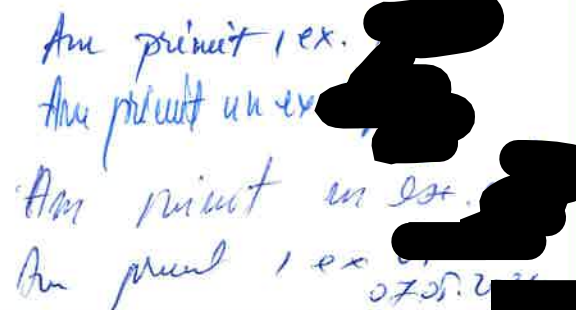 Am primit 1 ex.
Am primit un ex
Am primit un ex.
Am primit 1 ex
07.05.2